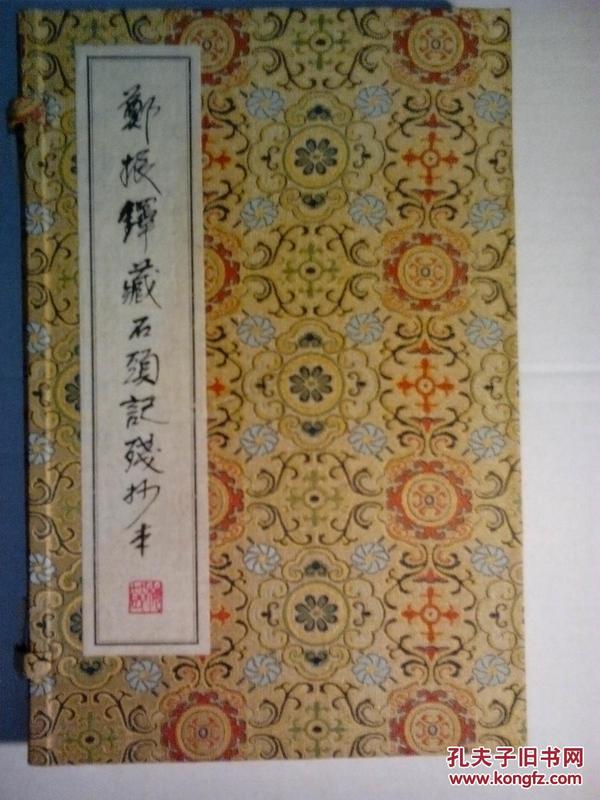 鄭振鐸藏石頭記殘抄本
孔夫子旧书网
www.kongfz.com